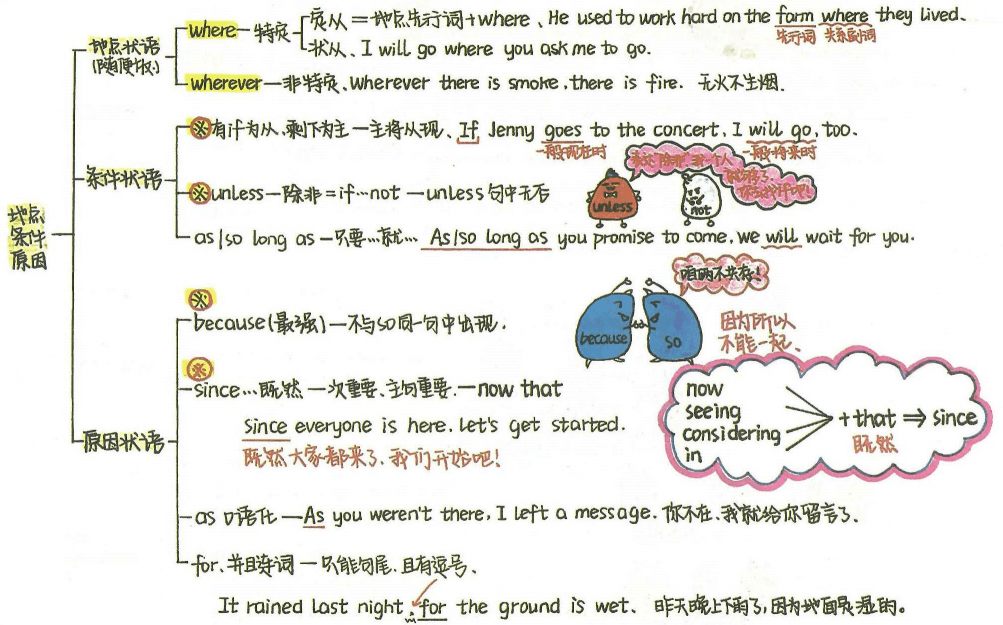 地点
条件
原因
地点状语
(随便饭)
where — 特定
定从 = 地点先行词 + where、He used to work hard on the farm where they lived.
先行词 关系副词
状从、I will go where you ask me to go.
wherever — 非特定、Wherever there is smoke, there is fire. 无火不生烟.
条件状语
※有if为从、剩下为主 — 主将从现、If Jenny goes to the concert, I will go, too.
一般现在时
一般将来时
※unless — 除非 = if…not — unless句中无否
unless
not
as/so long as — 只要…就… As/so long as you promise to come, we will wait for you.
原因状语
※
because(最强) — 不与so同一句中出现.
咱俩不共存!
because
so
因为所以
不能一起、
※
since…既然 — 次重要、主句重要. — now that
Since everyone is here. Let's get started.
既然大家都来了、我们开始吧!
now
seeing
considering
in
+ that ⇒ since
既然
as 口语化 — As you weren't there, I left a message. 你不在、我就给你留言了.
for、并且连词 — 只能句尾、且有逗号、
It rained last night, for the ground is wet、 昨天晚上下雨了,因为地面是湿的。